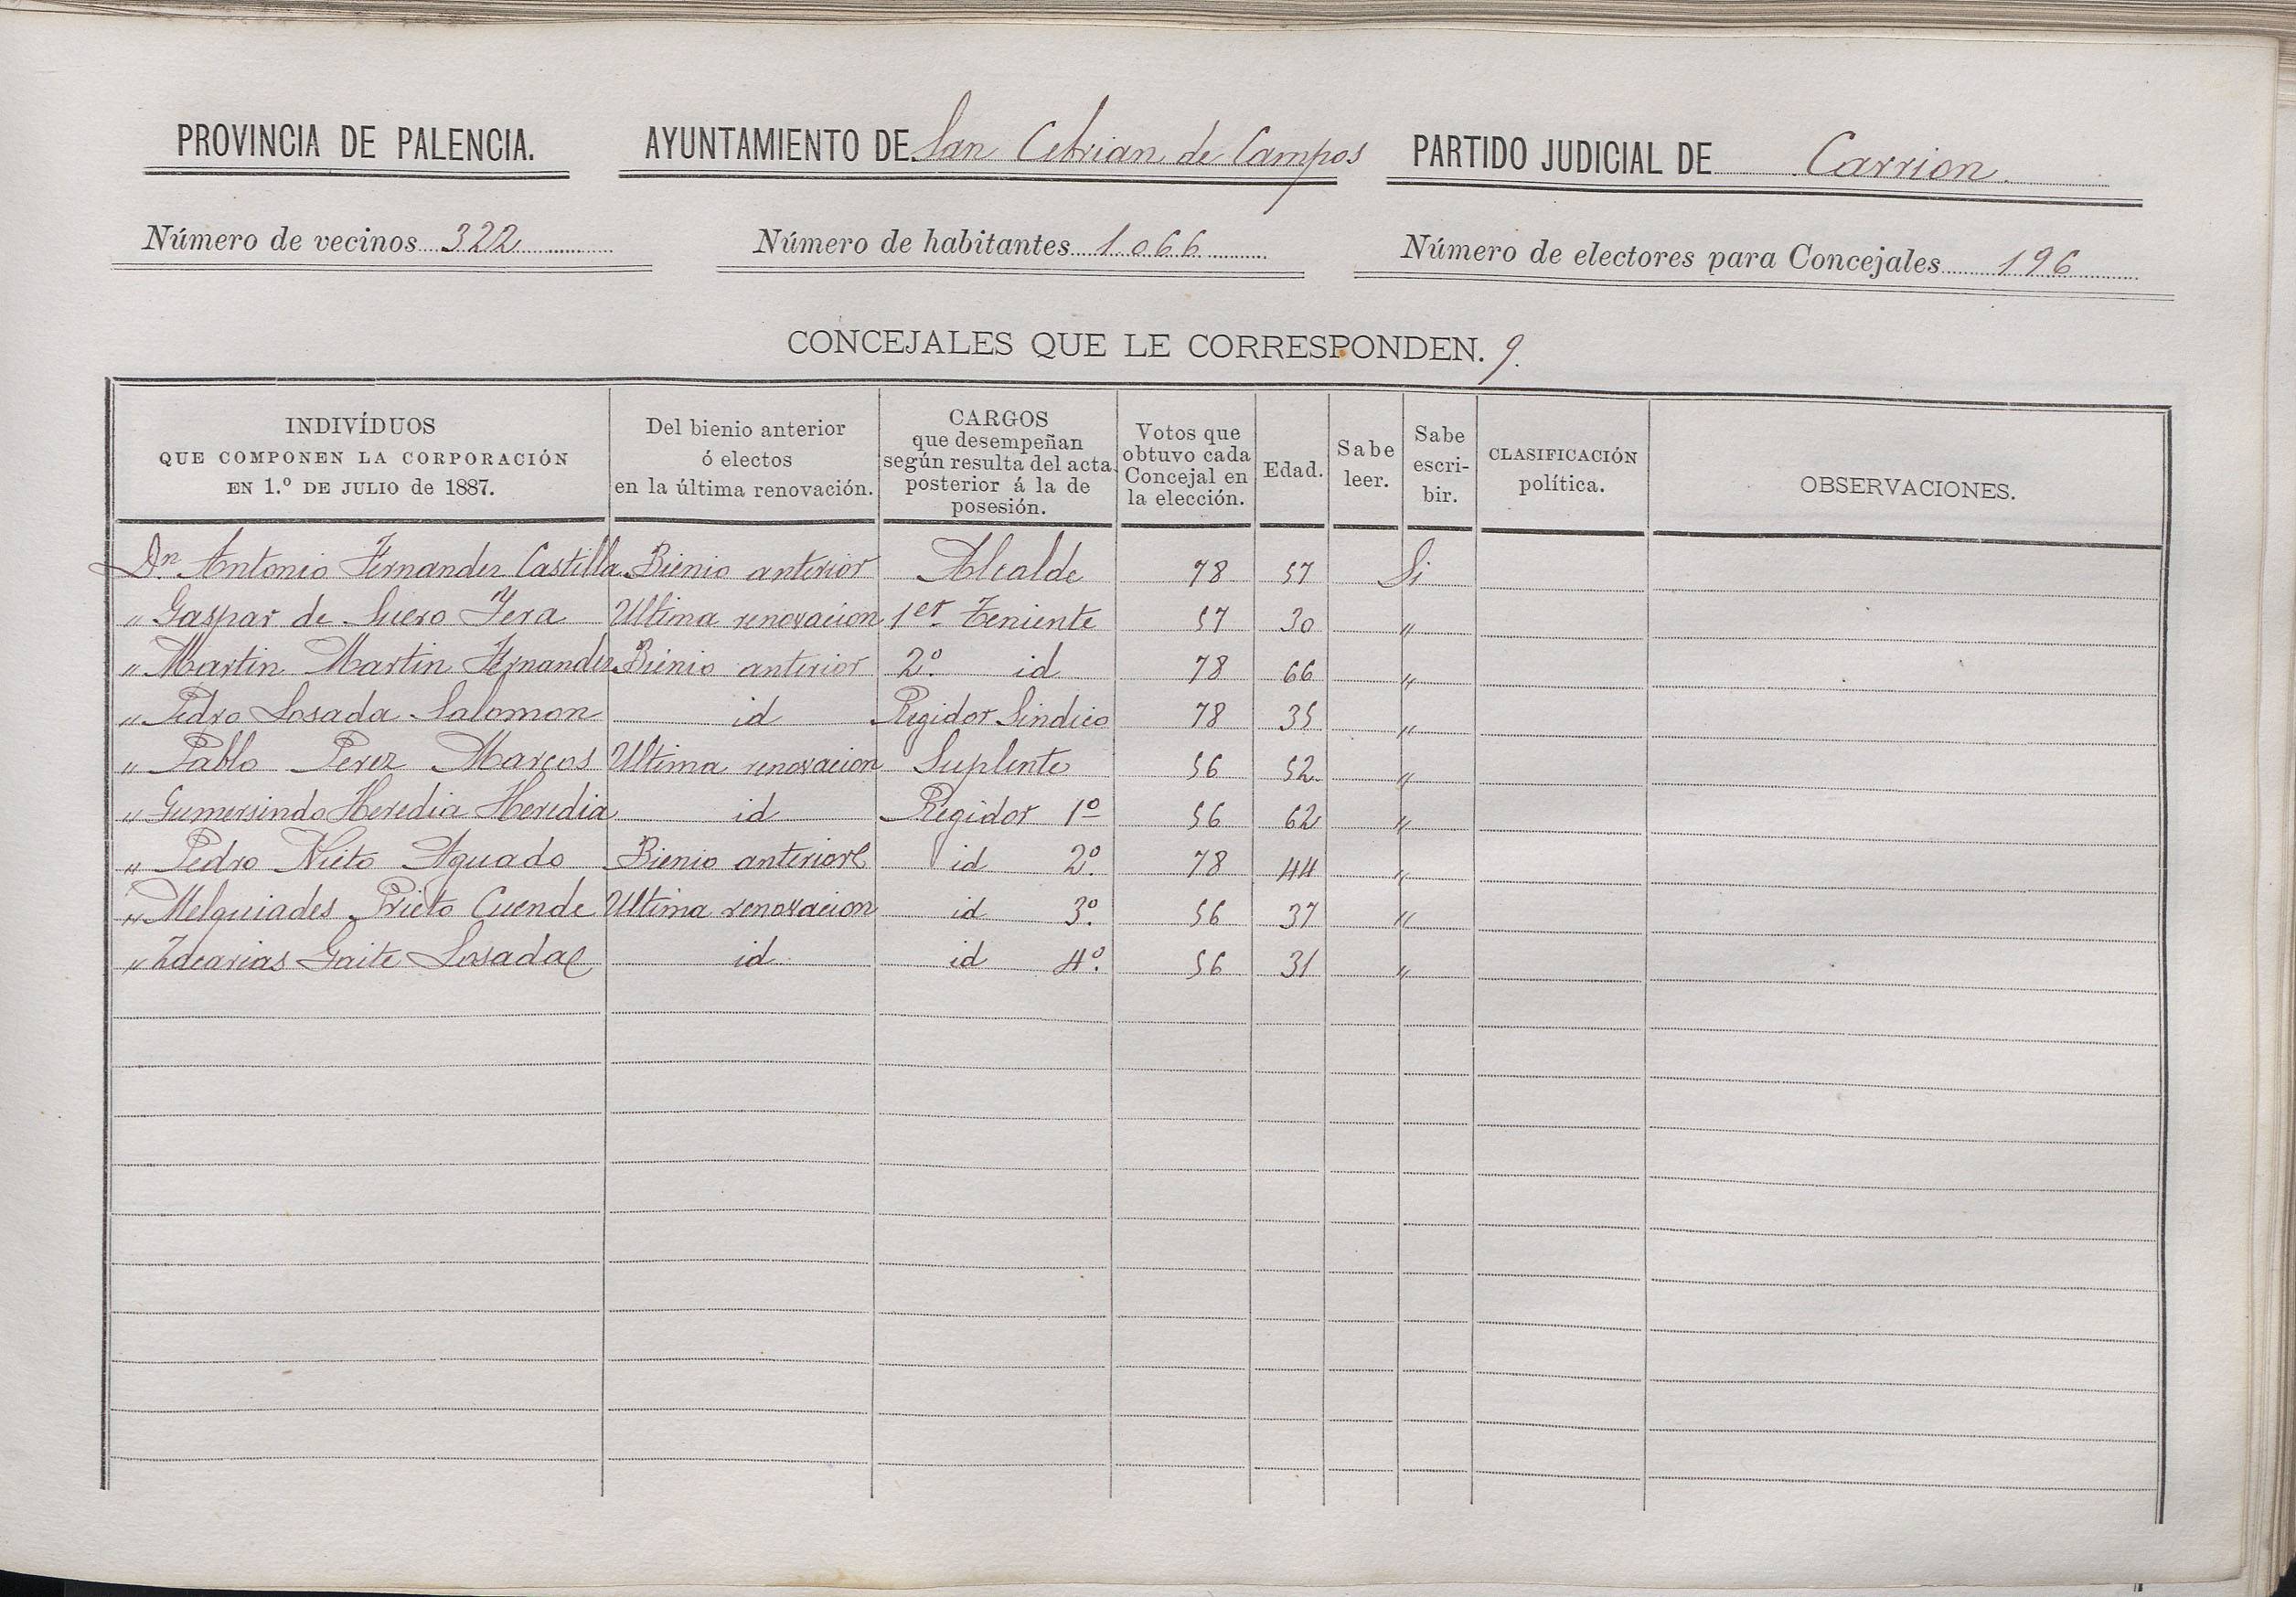 PROVINCIA DE PALENCIA. AYUNTAMIENTO DE San Cebrian de Campos PARTIDO JUDICIAL DE Carrion
Número de vecinos 322 Número de habitantes 1.066 Número de electores para Concejales 196
CONCEJALES QUE LE CORRESPONDEN. 9.
INDIVÍDUOS
QUE COMPONEN LA CORPORACIÓN
EN 1.º DE JULIO de 1887.
Del bienio anterior
ó electos
en la última renovación.
CARGOS
que desempeñan
según resulta del acta
posterior á la de
posesión.
Votos que
obtuvo cada
Concejal en
la elección.
Edad.
Sabe
leer.
Sabe
escri-
bir.
CLASIFICACIÓN
política.
OBSERVACIONES.
Dn Antonio Fernandez Castilla Bienio anterior Alcalde 78 57 Si
" Gaspar de Suero Yera Ultima renovacion 1er Teniente 57 30 "
" Martin Martin Fernandez Bienio anterior 2º. id 78 66 "
" Pedro Losada Salomon id Regidor Sindico 78 35 "
" Pablo Perez Marcos Ultima renovacion Suplente 56 52 "
" Gumersindo Heredia Heredia id Regidor 1º 56 62 "
" Pedro Nieto Aguado Bienio anterior id 2º. 78 44 "
" Melquiades Prieto Cuende Ultima renovacion id 3º. 56 37 "
" Zacarias Gaite Losada id id 4º. 56 31 "